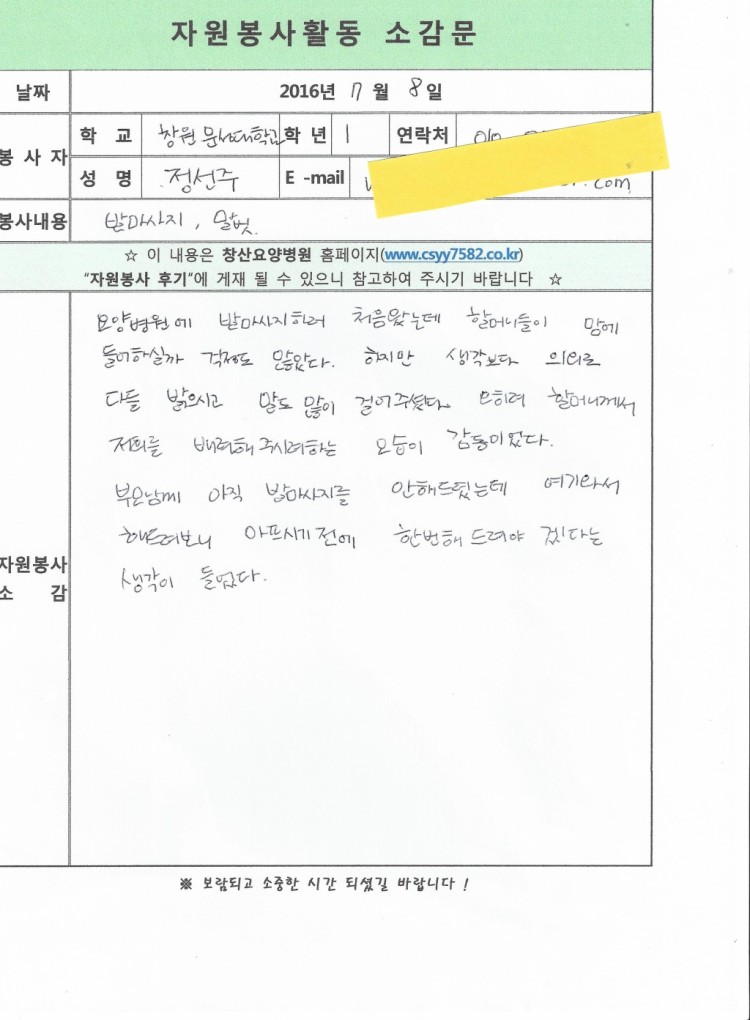 자원봉사활동 소감문
날짜 2016년 7월 8일
봉사자 학교 창원문성대학교 학년 1 연락처 010
성명 정선주 E-mail .com
봉사내용 발마사지, 말벗
☆ 이 내용은 창산요양병원 홈페이지(www.csyy7582.co.kr)
"자원봉사 후기"에 게재 될 수 있으니 참고하여 주시기 바랍니다 ☆
자원봉사 소감
요양병원에 발마사지하러 처음왔는데 할머니들이 맘에
들어하실까 걱정도 많았다. 하지만 생각보다 의외로
다들 밝으시고 말도 많이 걸어주셨다. 오히려 할머니께서
저희를 배려해주시려하는 모습이 감동이었다.
부모님께 아직 발마사지를 안해드렸는데 여기와서
해드려보니 아프시기전에 한번해드려야 겠다는
생각이 들었다.
※ 보람되고 소중한 시간 되셨길 바랍니다 !